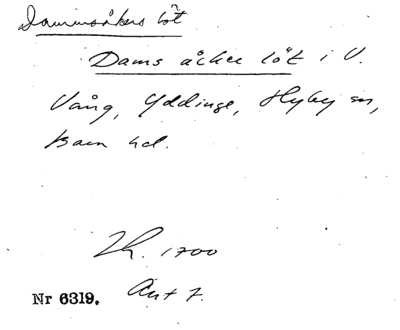 Dammsåkers löt
Dams åcker löt i V.
Vång, Yddinge, Hyby sn,
Bara hd.
Lh. 1700
Akt 7.
Nr 6319.